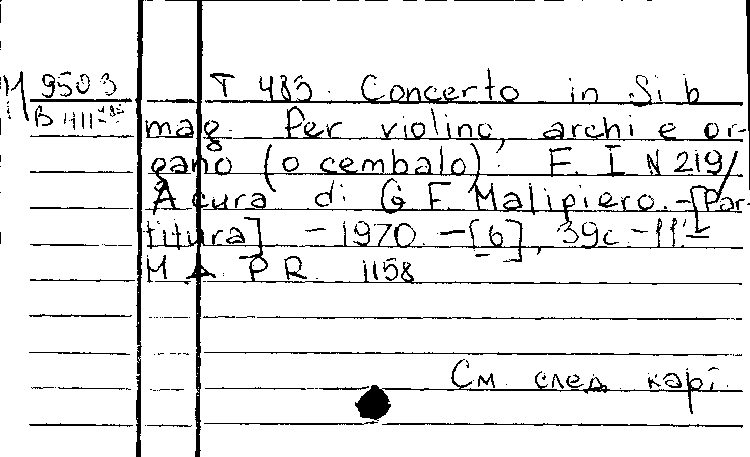 М 9503 Т 483. Concerto in Si b
В 411-483 mag. Per violino, archi e or-
gano (o cembalo). F. I N 219/
A cura di G. F. Malipiero. - [Par-
titura] - 1970. - [6], 39 c. - 11'-
М А P R 1158
См. след. карт.